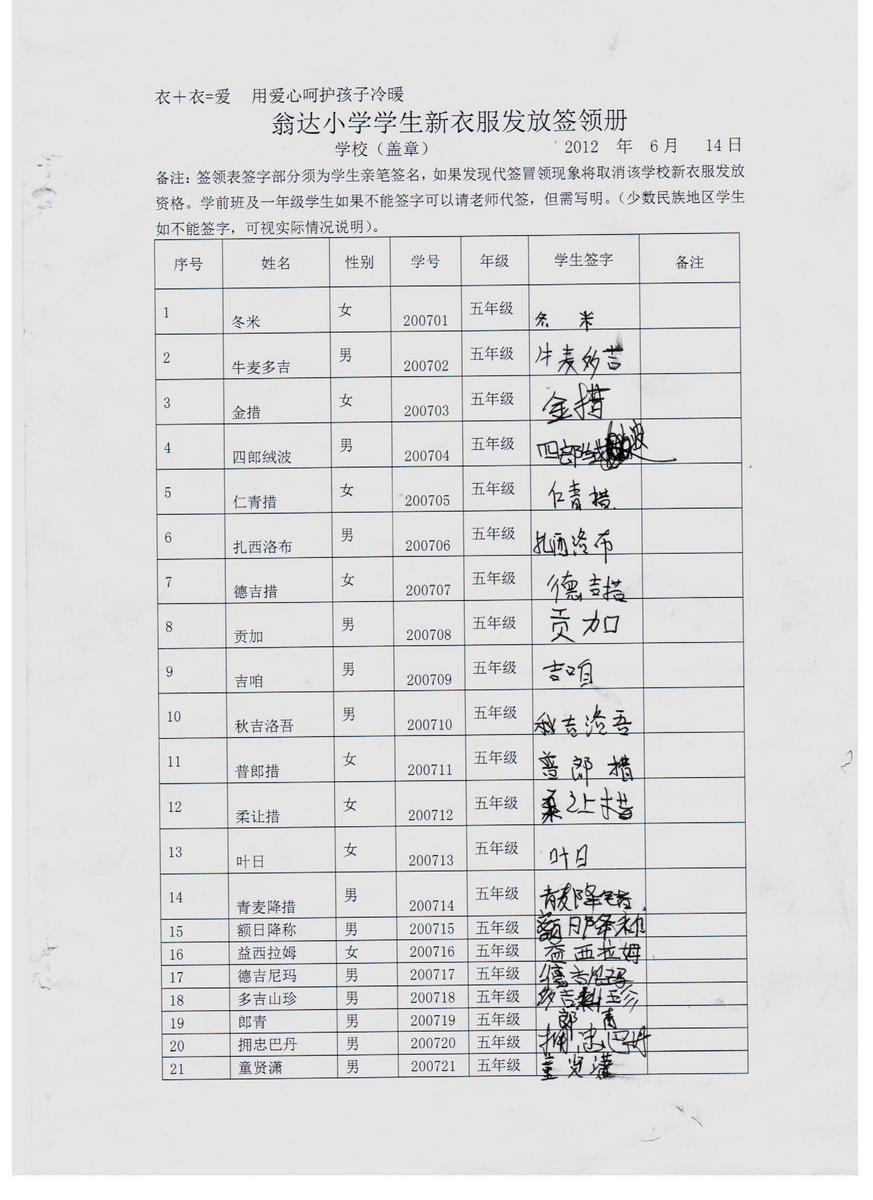 衣＋衣=爱　用爱心呵护孩子冷暖
翁达小学学生新衣服发放签领册
学校（盖章）　2012 年 6月 14日
备注：签领表签字部分须为学生亲笔签名，如果发现代签冒领现象将取消该学校新衣服发放
资格。学前班及一年级学生如果不能签字可以请老师代签，但需写明。（少数民族地区学生
如不能签字，可视实际情况说明）。
序号 姓名 性别 学号 年级 学生签字 备注
1 冬米 女 200701 五年级 冬米
2 牛麦多吉 男 200702 五年级 牛麦多吉
3 金措 女 200703 五年级 金措
4 四郎绒波 男 200704 五年级 四郎绒波
5 仁青措 女 200705 五年级 仁青措
6 扎西洛布 男 200706 五年级 扎西洛布
7 德吉措 女 200707 五年级 德吉措
8 贡加 男 200708 五年级 贡加
9 吉咱 男 200709 五年级 吉咱
10 秋吉洛吾 男 200710 五年级 秋吉洛吾
11 普郎措 女 200711 五年级 普郎措
12 柔让措 女 200712 五年级 柔让措
13 叶日 女 200713 五年级 叶日
14 青麦降措 男 200714 五年级 青麦降措
15 额日降称 男 200715 五年级 额日降称
16 益西拉姆 女 200716 五年级 益西拉姆
17 德吉尼玛 男 200717 五年级 德吉尼玛
18 多吉山珍 男 200718 五年级 多吉
19 郎青 男 200719 五年级 郎青
20 拥忠巴丹 男 200720 五年级 拥忠巴丹
21 童贤潇 男 200721 五年级 童贤潇